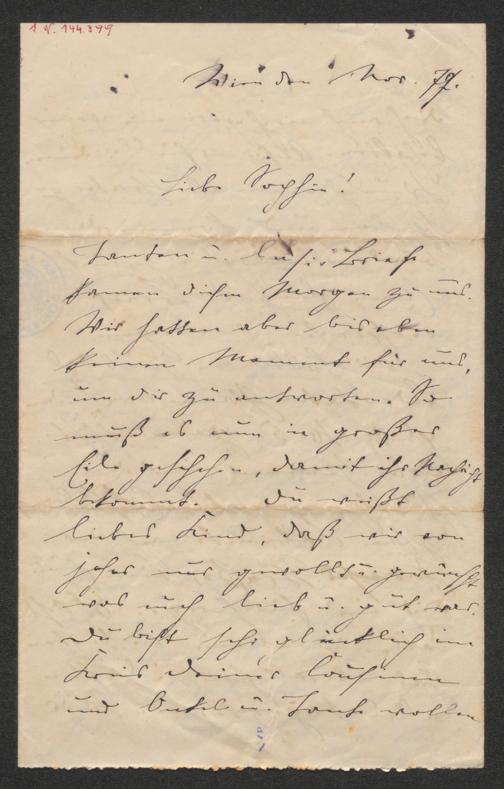 I. N. 144.399
Wien den Nov. 79.
Liebe Sophie!
Tanten u. Brief
kamen diesen Morgen zu uns.
Wir hatten aber bis eben
keinen Moment für uns,
um dir zu antworten. So
muß es nun in großer
Eile geschehen, damit ihr Nachricht
bekommt. Du weißt
liebes Kind, daß wir von
jeher nur gewollt u. gewünscht
was euch lieb u. gut war.
Du bist sehr glücklich im
Kreis deiner
und Onkel u. Tante wollen